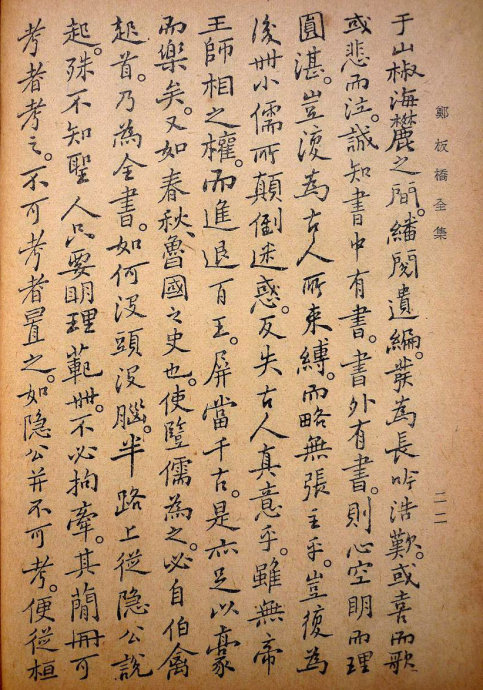 鄭板橋全集
于山椒海麓之間。繙閱遺編。發為長吟浩歎。或喜而歌
或悲而泣。誠知書中有書。書外有書。則心空明而理
圓湛。豈復為古人所束縛。而略無張主乎。豈復為
後世小儒所顛倒迷惑。反失古人真意乎。雖無帝
王師相之權。而進退百王。屏當千古。是亦足以豪
而樂矣。又如春秋。魯國之史也。使豎儒為之。必自伯禽
起首。乃為全書。如何沒頭沒腦。半路上從隱公說
起。殊不知聖人只要明理範世。不必拘牽。其簡冊可
考者考之。不可考者置之。如隱公并不可考。便從桓